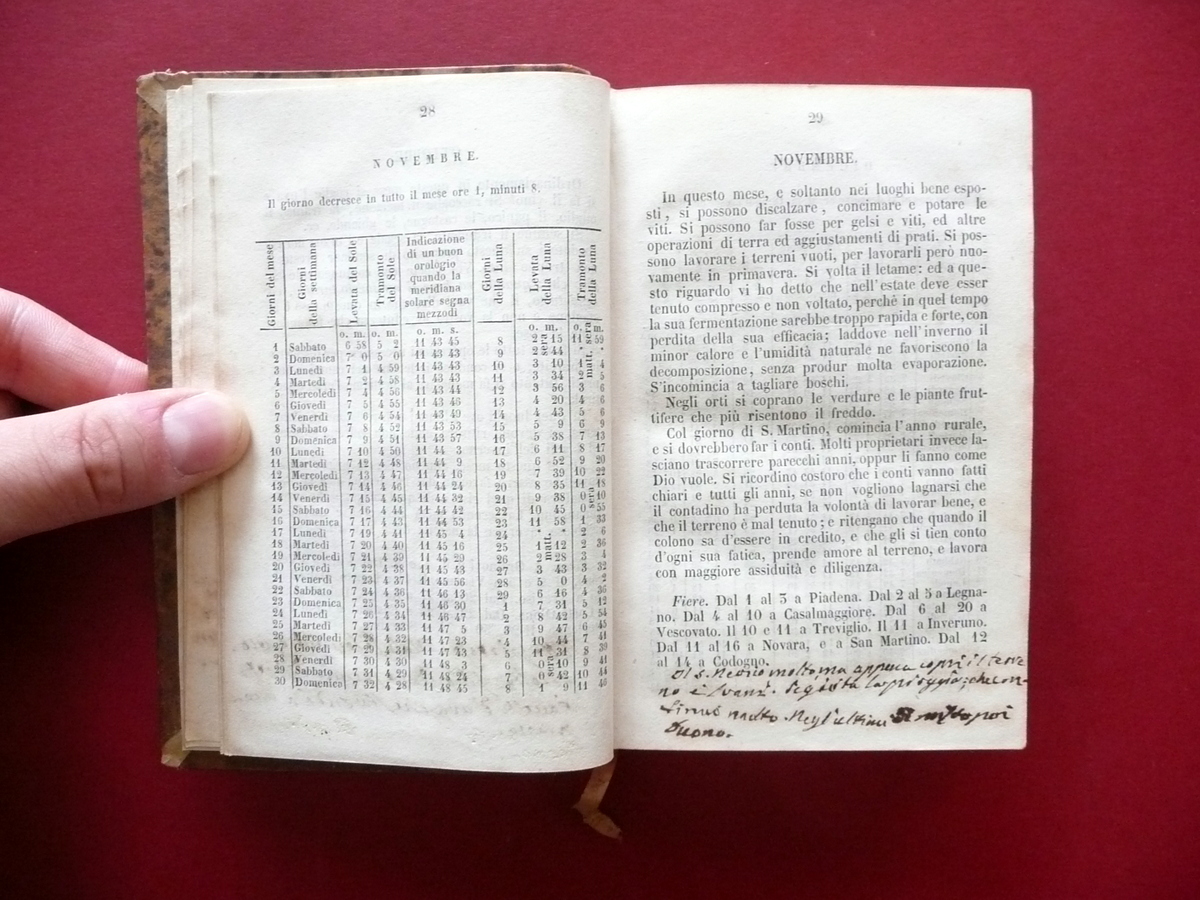 28
NOVEMBRE.
Il giorno decresce in tutto il mese ore 1, minuti 8.
Giorni del mese
Giorni
della settimana
Levata del Sole
Tramonto
del Sole
Indicazione
di un buon
orologio
quando la
meridiana
solare segna
mezzodì
Giorni
della Luna
Levata
della Luna
Tramonto
della Luna
o. m. o. m. o. m. s. o. m. o. m.
1 Sabbato 6 58 5 2 11 43 45 8 2 sera 15 11 sera 59
2 Domenica 7 0 5 0 11 43 43 9 2 44 *
3 Lunedì 7 1 4 59 11 43 43 10 3 10 1 matt. 4
4 Martedì 7 2 4 58 11 43 43 11 3 34 2 5
5 Mercoledì 7 4 4 56 11 43 44 12 3 56 3 6
6 Giovedì 7 5 4 55 11 43 46 13 4 20 4 6
7 Venerdì 7 6 4 54 11 43 49 14 4 43 5 6
8 Sabbato 7 8 4 52 11 43 53 15 5 9 6 9
9 Domenica 7 9 4 51 11 43 57 16 5 38 7 13
10 Lunedì 7 10 4 50 11 44 3 17 6 11 8 17
11 Martedì 7 12 4 48 11 44 9 18 6 52 9 20
12 Mercoledì 7 13 4 47 11 44 16 19 7 39 10 22
13 Giovedì 7 14 4 46 11 44 24 20 8 35 11 18
14 Venerdì 7 15 4 45 11 44 32 21 9 38 0 sera 10
15 Sabbato 7 16 4 44 11 44 42 22 10 45 0 55
16 Domenica 7 17 4 43 11 44 53 23 11 58 1 33
17 Lunedì 7 19 4 41 11 45 4 24 * * 2 6
18 Martedì 7 20 4 40 11 45 16 25 1 matt. 12 2 36
19 Mercoledì 7 21 4 39 11 45 29 26 2 28 3 4
20 Giovedì 7 22 4 38 11 45 43 27 3 43 3 32
21 Venerdì 7 23 4 37 11 45 56 28 5 0 4 2
22 Sabbato 7 24 4 36 11 46 13 29 6 16 4 36
23 Domenica 7 25 4 35 11 46 30 1 7 31 5 12
24 Lunedì 7 26 4 34 11 46 47 2 8 42 5 54
25 Martedì 7 27 4 33 11 47 5 3 9 47 6 45
26 Mercoledì 7 28 4 32 11 47 23 4 10 44 7 41
27 Giovedì 7 29 4 31 11 47 43 5 11 31 8 39
28 Venerdì 7 30 4 30 11 48 3 6 0 sera 10 9 41
29 Sabbato 7 31 4 29 11 48 24 7 0 42 10 44
30 Domenica 7 32 4 28 11 48 45 8 1 9 11 46
29
NOVEMBRE.
In questo mese, e soltanto nei luoghi bene espo-
sti, si possono discalzare, concimare e potare le
viti. Si possono far fosse per gelsi e viti, ed altre
operazioni di terra ed aggiustamenti di prati. Si pos-
sono lavorare i terreni vuoti, per lavorarli però nuo-
vamente in primavera. Si volta il letame: ed a que-
sto riguardo vi ho detto che nell'estate deve esser
tenuto compresso e non voltato, perchè in quel tempo
la sua fermentazione sarebbe troppo rapida e forte, con
perdita della sua efficacia; laddove nell'inverno il
minor calore e l'umidità naturale ne favoriscono la
decomposizione, senza produr molta evaporazione.
S'incomincia a tagliare boschi.
Negli orti si coprano le verdure e le piante frut-
tifere che più risentono il freddo.
Col giorno di S. Martino, comincia l'anno rurale,
e si dovrebbero far i conti. Molti proprietari invece la-
sciano trascorrere parecchi anni, oppur li fanno come
Dio vuole. Si ricordino costoro che i conti vanno fatti
chiari e tutti gli anni, se non vogliono lagnarsi che
il contadino ha perduta la volontà di lavorar bene, e
che il terreno è mal tenuto; e ritengano che quando il
colono sa d'essere in credito, e che gli si tien conto
d'ogni sua fatica, prende amore al terreno, e lavora
con maggiore assiduità e diligenza.
Fiere. Dal 1 al 3 a Piadena. Dal 2 al 5 a Legna-
no. Dal 4 al 10 a Casalmaggiore. Dal 6 al 20 a
Vescovato. Il 10 e 11 a Treviglio. Il 11 a Inveruno.
Dal 11 al 16 a Novara, e a San Martino. Dal 12
al 14 a Codogno.
molto, ma appena coprì il terre
no e svanì. Seguitò la pioggia; che con-
tinuò molto. Negl'ultimi molto poi
buono.